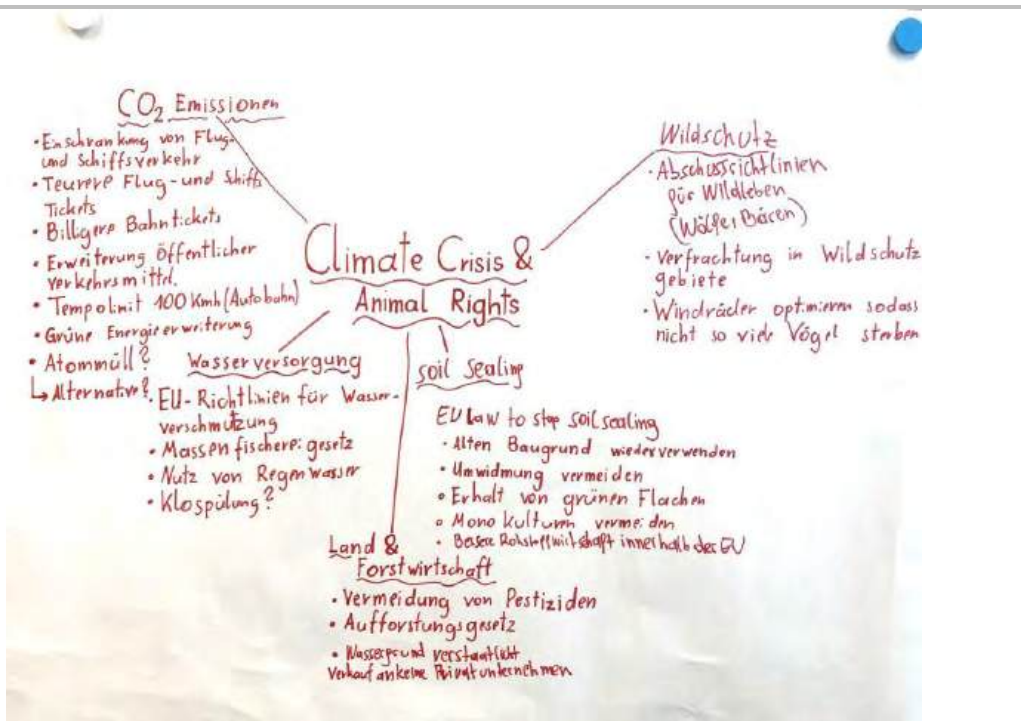 CO₂ Emissionen
• Einschrankung von Flug-
und Schiffsverkehr
• Teurere Flug- und Schiffs
Tickets
• Billigere Bahntickets
• Erweiterung Öffentlicher
verkehrsmittel.
• Tempolimit 100 Kmh (Autobahn)
• Grüne Energieerweiterung
• Atommüll?
↳ Alternative?
Climate Crisis &
Animal Rights
Wildschutz
• Abschussrichtlinien
für Wildleben
(Wölfe, Bären)
• Verfrachtung in Wildschutz
gebiete
• Windräder optimieren sodass
nicht so viele Vögel sterben
Wasserversorgung
• EU-Richtlinien für Wasser-
verschmutzung
• Massenfischereigesetz
• Nutz von Regenwasser
• Klospülung?
soil sealing
EU law to stop soil sealing
• Alten Baugrund wiederverwenden
• Umwidmung vermeiden
• Erhalt von grünen Flachen
• Mono kulturen vermeiden
• Bessere Rohstoffwirtschaft innerhalb der EU
Land &
Forstwirtschaft
• Vermeidung von Pestiziden
• Aufforstungsgesetz
• Wassergrund verstaatlicht
Verkauf an keine Privatunternehmen